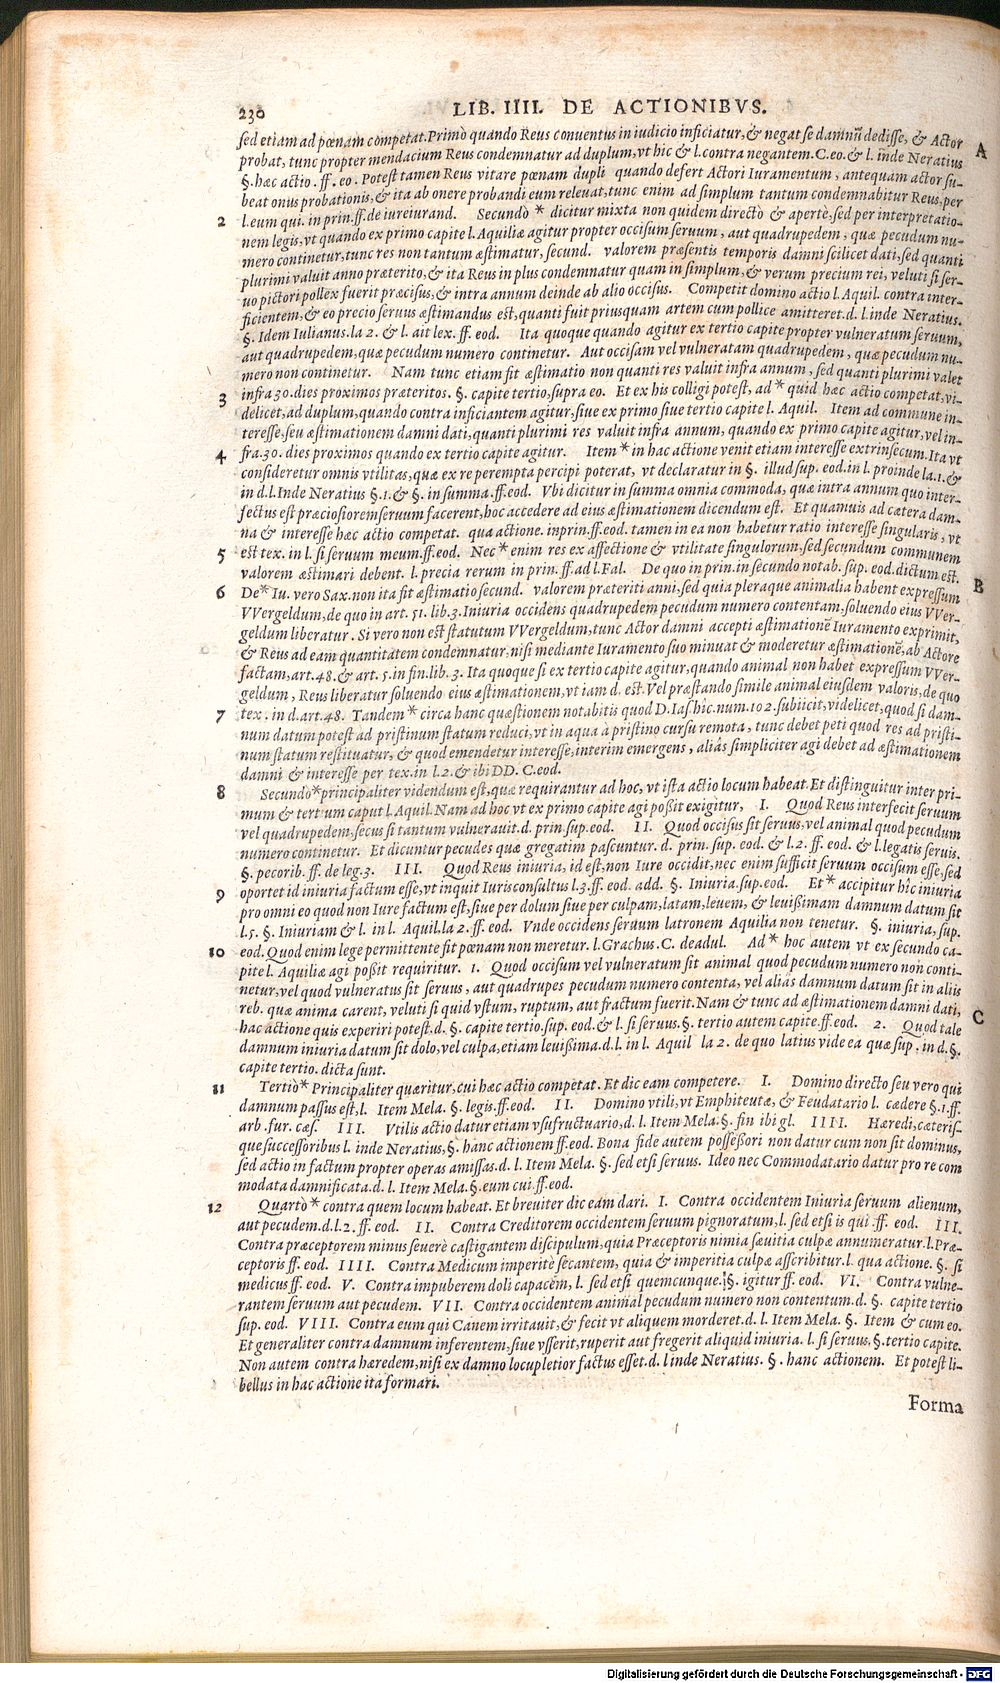 230 LIB. IIII. DE ACTIONIBVS.
sed etiam ad pœnam competat. Primò quando Reus conuentus in iudicio inficiatur, & negat se damnũ dedisse, & Actor A
probat, tunc propter mendacium Reus condemnatur ad duplum, vt hic & l. contra negantem. C. eo. & l. inde Neratius
§. hæc actio. ff. eo. Potest tamen Reus vitare pœnam dupli quando defert Actori Iuramentum, antequam actor su-
beat onus probationis, & ita ab onere probandi eum releuat, tunc enim ad simplum tantum condemnabitur Reus, per
2 l. eum qui. in prin. ff. de iureiurand. Secundò * dicitur mixta non quidem directò & apertè, sed per interpretatio-
nem legis, vt quando ex primo capite l. Aquiliæ agitur propter occisum seruum, aut quadrupedem, quæ pecudum nu-
mero continetur, tunc res non tantum æstimatur, secund. valorem præsentis temporis damni scilicet dati, sed quanti
plurimi valuit anno præterito, & ita Reus in plus condemnatur quam in simplum, & verum precium rei, veluti si ser-
uo pictori pollex fuerit præcisus, & intra annum deinde ab alio occisus. Competit domino actio l. Aquil. contra inter-
ficientem, & eo precio seruus æstimandus est, quanti fuit priusquam artem cum pollice amitteret. d. l. inde Neratius.
§. Idem Iulianus. la 2. & l. ait lex. ff. eod. Ita quoque quando agitur ex tertio capite propter vulneratum seruum,
aut quadrupedem, quæ pecudum numero continetur. Aut occisam vel vulneratam quadrupedem, quæ pecudum nu-
mero non continetur. Nam tunc etiam fit æstimatio non quanti res valuit infra annum, sed quanti plurimi valet
3 infra 30. dies proximos præteritos. §. capite tertio, supra eo. Et ex his colligi potest, ad * quid hæc actio competat, vi-
delicet, ad duplum, quando contra inficiantem agitur, siue ex primo siue tertio capite l. Aquil. Item ad commune in-
teresse, seu æstimationem damni dati, quanti plurimi res valuit infra annum, quando ex primo capite agitur, vel in-
4 fra. 30. dies proximos quando ex tertio capite agitur. Item * in hac actione venit etiam interesse extrinsecum. Ita vt
consideretur omnis vtilitas, quæ ex re perempta percipi poterat, vt declaratur in §. illud sup. eod. in l. proinde la. 1. &
in d. l. Inde Neratius §. 1. & §. in summa. ff. eod. Vbi dicitur in summa omnia commoda, quæ intra annum quo inter-
fectus est præciosiorem seruum facerent, hoc accedere ad eius æstimationem dicendum est. Et quamuis ad cætera dam-
na & interesse hæc actio competat. qua actione. in prin. ff. eod. tamen in ea non habetur ratio interesse singularis, vt
5 est tex. in l. si seruum meum. ff. eod. Nec * enim res ex affectione & vtilitate singulorum, sed secundum communem
valorem æstimari debent. l. precia rerum in prin. ff. ad l. Fal. De quo in prin. in secundo notab. sup. eod. dictum est. B
6 De * Iu. vero Sax. non ita fit æstimatio secund. valorem præteriti anni, sed quia pleraque animalia habent expressum
VVergeldum, de quo in art. 51. lib. 3. Iniuria occidens quadrupedem pecudum numero contentam, soluendo eius VVer-
geldum liberatur. Si vero non est statutum VVergeldum, tunc Actor damni accepti æstimationẽ Iuramento exprimit,
& Reus ad eam quantitatem condemnatur, nisi mediante Iuramento suo minuat & moderetur æstimationẽ, ab Actore
factam, art. 48. & art. 5. in fin. lib. 3. Ita quoque si ex tertio capite agitur, quando animal non habet expressum VVer-
geldum, Reus liberatur soluendo eius æstimationem, vt iam d. est. Vel præstando simile animal eiusdem valoris, de quo
7 tex. in d. art. 48. Tandem * circa hanc quæstionem notabitis quod D. Ias hîc. num. 102. subiicit, videlicet, quod si dam-
num datum potest ad pristinum statum reduci, vt in aqua à pristino cursu remota, tunc debet peti quod res ad pristi-
num statum restituatur, & quod emendetur interesse, interim emergens, aliàs simpliciter agi debet ad æstimationem
damni & interesse per tex. in l. 2. & ibi DD. C. eod.
8 Secundo * principaliter videndum est, quæ requirantur ad hoc, vt ista actio locum habeat. Et distinguitur inter pri-
mum & tertium caput l. Aquil. Nam ad hoc vt ex primo capite agi poßit exigitur, I. Quod Reus interfecit seruum
vel quadrupedem, secus si tantum vulnerauit. d. prin. sup. eod. II. Quod occisus sit seruus, vel animal quod pecudum
numero continetur. Et dicuntur pecudes quæ gregatim pascuntur. d. prin. sup. eod. & l. 2. ff. eod. & l. legatis seruis.
§. pecorib. ff. de leg. 3. III. Quod Reus iniuria, id est, non Iure occidit, nec enim sufficit seruum occisum esse, sed
9 oportet id iniuria factum esse, vt inquit Iurisconsultus l. 3. ff. eod. add. §. Iniuria. sup. eod. Et * accipitur hîc iniuria
pro omni eo quod non Iure factum est, siue per dolum siue per culpam, latam, leuem, & leuißimam damnum datum sit
l. 5. §. Iniuriam & l. in l. Aquil. la 2. ff. eod. Vnde occidens seruum latronem Aquilia non tenetur. §. iniuria, sup.
10 eod. Quod enim lege permittente fit pœnam non meretur. l. Grachus. C. de adul. Ad * hoc autem vt ex secundo ca-
pite l. Aquiliæ agi poßit requiritur. 1. Quod occisum vel vulneratum sit animal quod pecudum numero non conti-
netur, vel quod vulneratus sit seruus, aut quadrupes pecudum numero contenta, vel aliàs damnum datum sit in aliis
reb. quæ anima carent, veluti si quid vstum, ruptum, aut fractum fuerit. Nam & tunc ad æstimationem damni dati,
hac actione quis experiri potest. d. §. capite tertio. sup. eod. & l. si seruus. §. tertio autem capite. ff. eod. 2. Quod tale C
damnum iniuria datum sit dolo, vel culpa, etiam leuißima. d. l. in l. Aquil la 2. de quo latius vide ea quæ sup. in d. §.
capite tertio. dicta sunt.
11 Tertiò * Principaliter quæritur, cui hæc actio competat. Et dic eam competere. I. Domino directo seu vero qui
damnum passus est, l. Item Mela. §. legis. ff. eod. II. Domino vtili, vt Emphiteutæ, & Feudatario l. cædere §. 1. ff.
arb. fur. cæs. III. Vtilis actio datur etiam vsufructuario, d. l. Item Mela. §. fin ibi gl. IIII. Hæredi, cæteris-
que successoribus l. inde Neratius, §. hanc actionem ff. eod. Bona fide autem possessori non datur cum non sit dominus,
sed actio in factum propter operas amissas. d. l. Item Mela. §. sed etsi seruus. Ideo nec Commodatario datur pro re com
modata damnificata. d. l. Item Mela. §. eum cui. ff. eod.
12 Quartò * contra quem locum habeat. Et breuiter dic eam dari. I. Contra occidentem Iniuria seruum alienum,
aut pecudem. d. l. 2. ff. eod. II. Contra Creditorem occidentem seruum pignoratum, l. sed etsi is qui ff. eod. III.
Contra præceptorem minus seuerè castigantem discipulum, quia Præceptoris nimia sæuitia culpæ annumeratur. l. Præ-
ceptoris ff. eod. IIII. Contra Medicum imperitè secantem, quia & imperitia culpæ asscribitur. l. qua actione. §. si
medicus ff. eod. V. Contra impuberem doli capacem, l. sed etsi quemcunque. §. igitur ff. eod. VI. Contra vulne-
rantem seruum aut pecudem. VII. Contra occidentem animal pecudum numero non contentum. d. §. capite tertio
sup. eod. VIII. Contra eum qui Canem irritauit, & fecit vt aliquem morderet. d. l. Item Mela. §. Item & cum eo.
Et generaliter contra damnum inferentem, siue vsserit, ruperit aut fregerit aliquid iniuria. l. si seruus, §. tertio capite.
Non autem contra hæredem, nisi ex damno locupletior factus esset. d. l inde Neratius. §. hanc actionem. Et potest li-
bellus in hac actione ita formari.
Forma
Digitalisierung gefördert durch die Deutsche Forschungsgemeinschaft - DFG